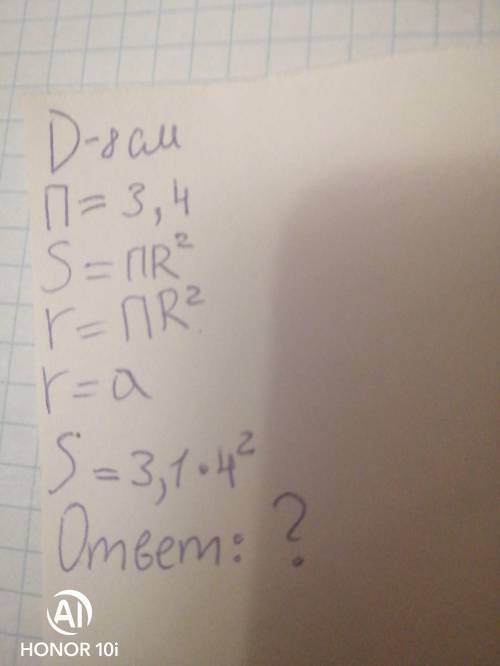 D-8 см
П = 3,4
S = ПR²
r = ПR²
r = a
S = 3,1 · 4²
Ответ: ?
AI
HONOR 10i